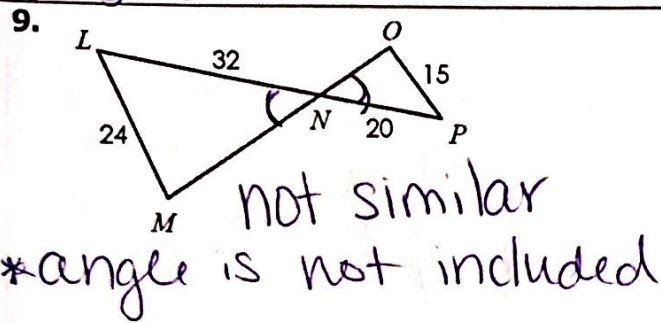 9.
L
32
O
15
24
N
20
P
M
not similar
*angle is not included